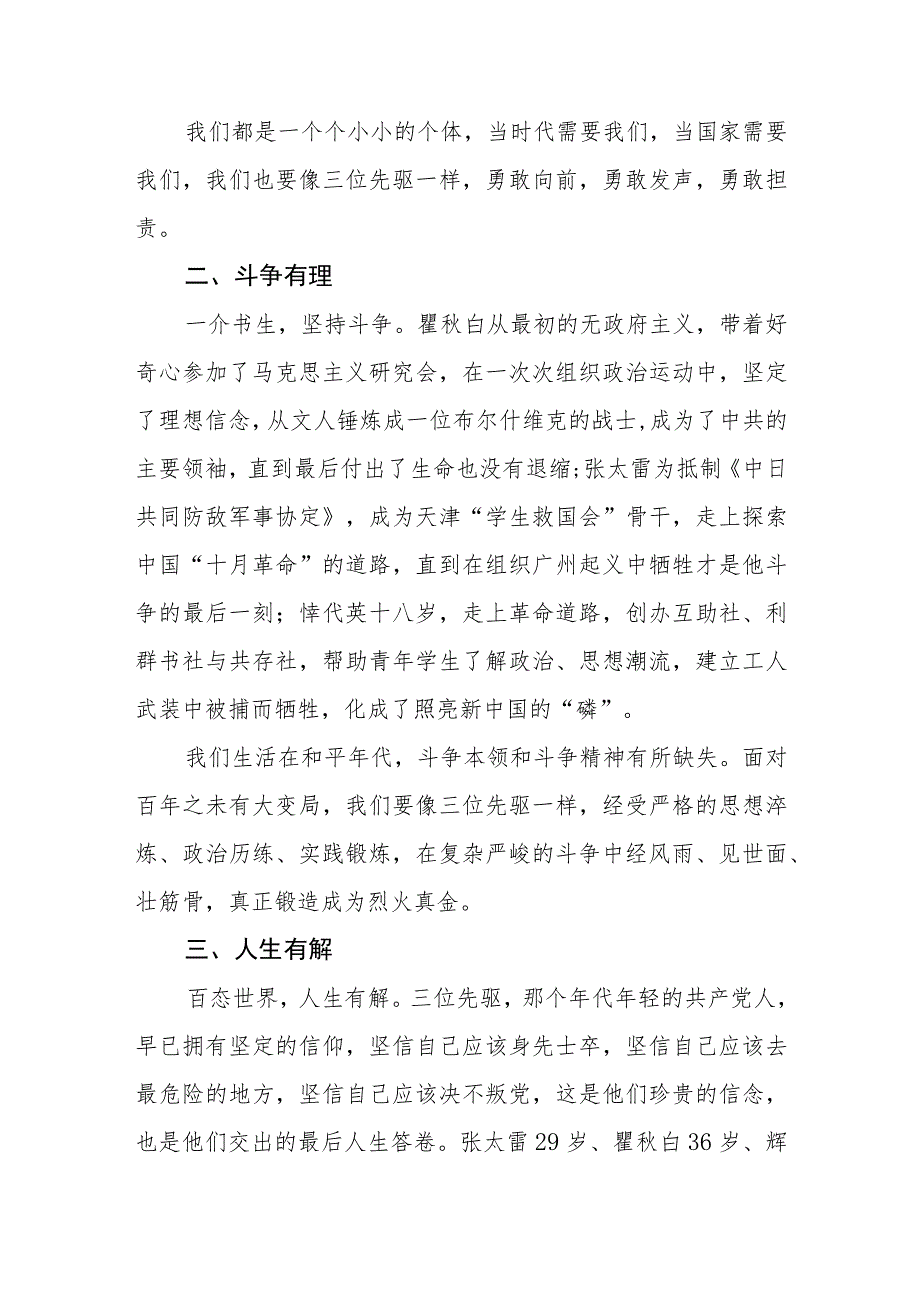 我们都是一个个小小的个体，当时代需要我们，当国家需要
我们，我们也要像三位先驱一样，勇敢向前，勇敢发声，勇敢担
责。
二、斗争有理
一介书生，坚持斗争。瞿秋白从最初的无政府主义，带着好
奇心参加了马克思主义研究会，在一次次组织政治运动中，坚定
了理想信念，从文人锤炼成一位布尔什维克的战士,成为了中共的
主要领袖，直到最后付出了生命也没有退缩;张太雷为抵制《中日
共同防敌军事协定》，成为天津“学生救国会”骨干，走上探索
中国“十月革命”的道路，直到在组织广州起义中牺牲才是他斗
争的最后一刻；悻代英十八岁，走上革命道路，创办互助社、利
群书社与共存社，帮助青年学生了解政治、思想潮流，建立工人
武装中被捕而牺牲，化成了照亮新中国的“磷”。
我们生活在和平年代，斗争本领和斗争精神有所缺失。面对
百年之未有大变局，我们要像三位先驱一样，经受严格的思想淬
炼、政治历练、实践锻炼，在复杂严峻的斗争中经风雨、见世面、
壮筋骨，真正锻造成为烈火真金。
三、人生有解
百态世界，人生有解。三位先驱，那个年代年轻的共产党人，
早已拥有坚定的信仰，坚信自己应该身先士卒，坚信自己应该去
最危险的地方，坚信自己应该决不叛党，这是他们珍贵的信念，
也是他们交出的最后人生答卷。张太雷29岁、瞿秋白36岁、辉